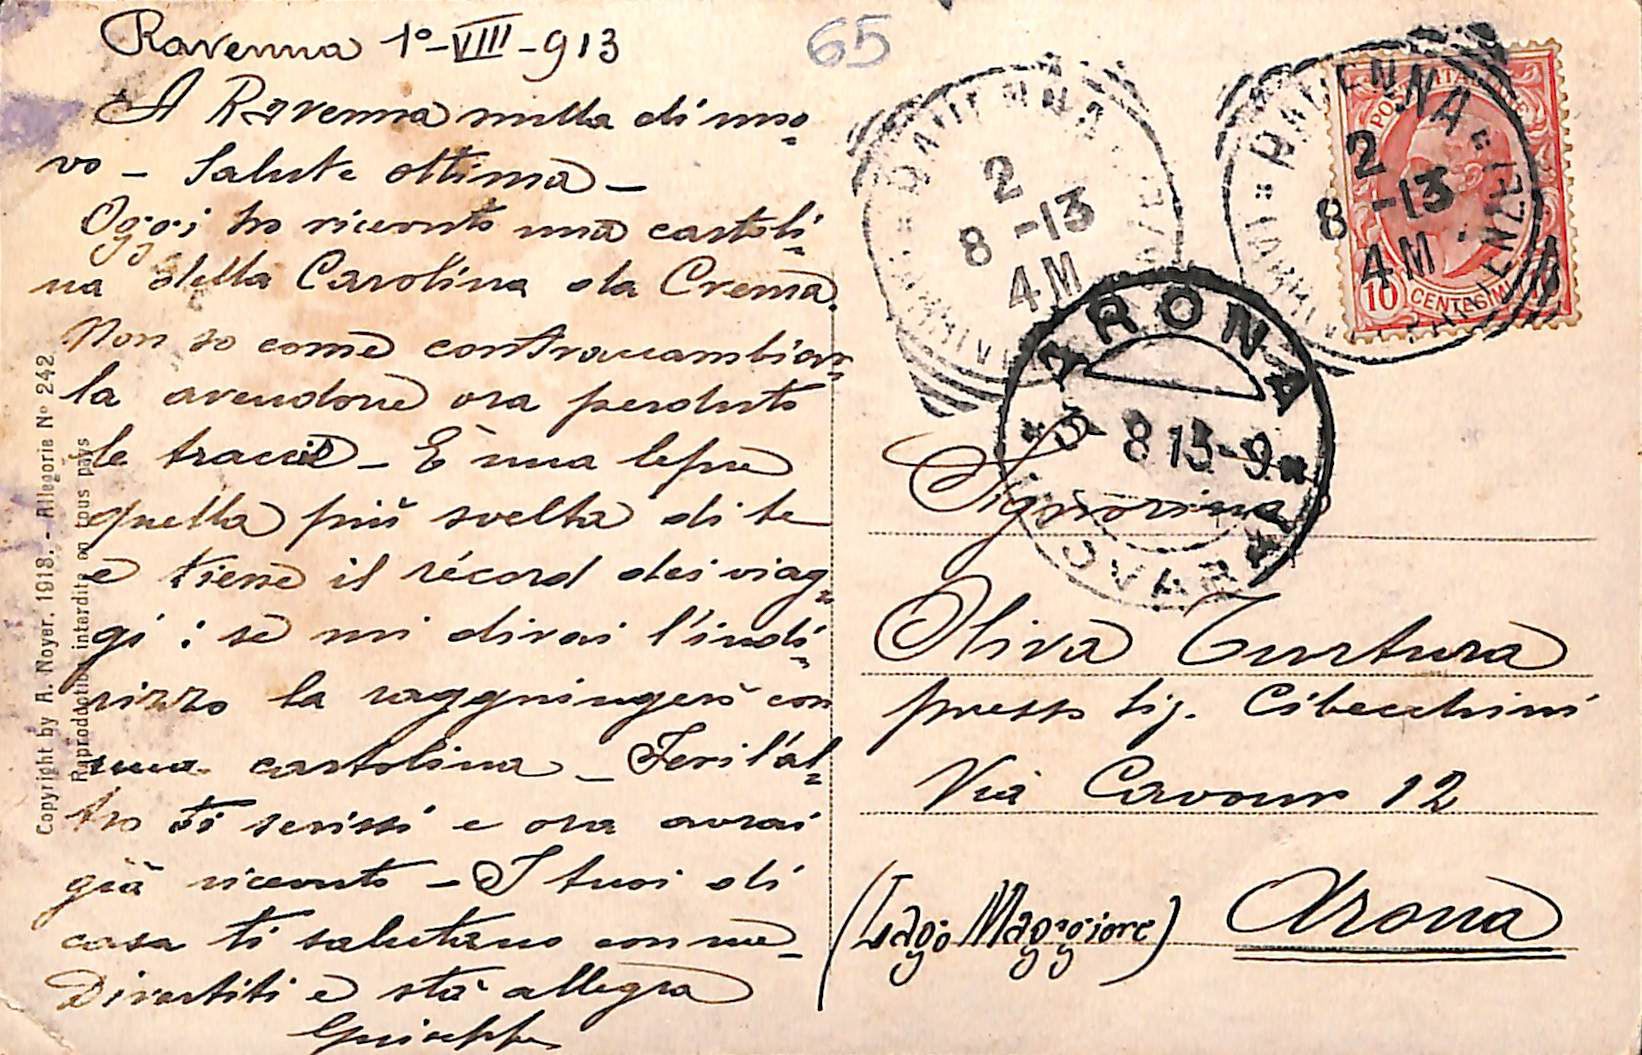 Ravenna 1º-VIII-913
65
A Ravenna nulla di nuo-
vo - Salute ottima -
Oggi ho ricevuto una cartoli-
na della Carolina da Crema.
Non so come contraccambiar-
la avendone ora perduto
le traccie - È una lepre
quella più svelta di te
e tiene il récord dei viag-
gi: se mi dirai l'indi-
rizzo la raggiungerò con
una cartolina - Ieri l'al-
tro ti scrissi e ora avrai
già ricevuto - I tuoi di
casa ti salutano con me -
Divertiti e stà allegra
Giuseppe
Copyright by A. Noyer. 1918. - Allegorie Nº 242
Reproduction interdite en tous pays
RAVENNA
2
8-13
4M
RAVENNA
2
8-13
4M
POSTE ITALIANE
10 CENTESIMI
ARONA
3-8 13-9
Signorina
Oliva Turtura
presso Sig. Cibecchini
Via Cavour 12
(Lago Maggiore) Arona